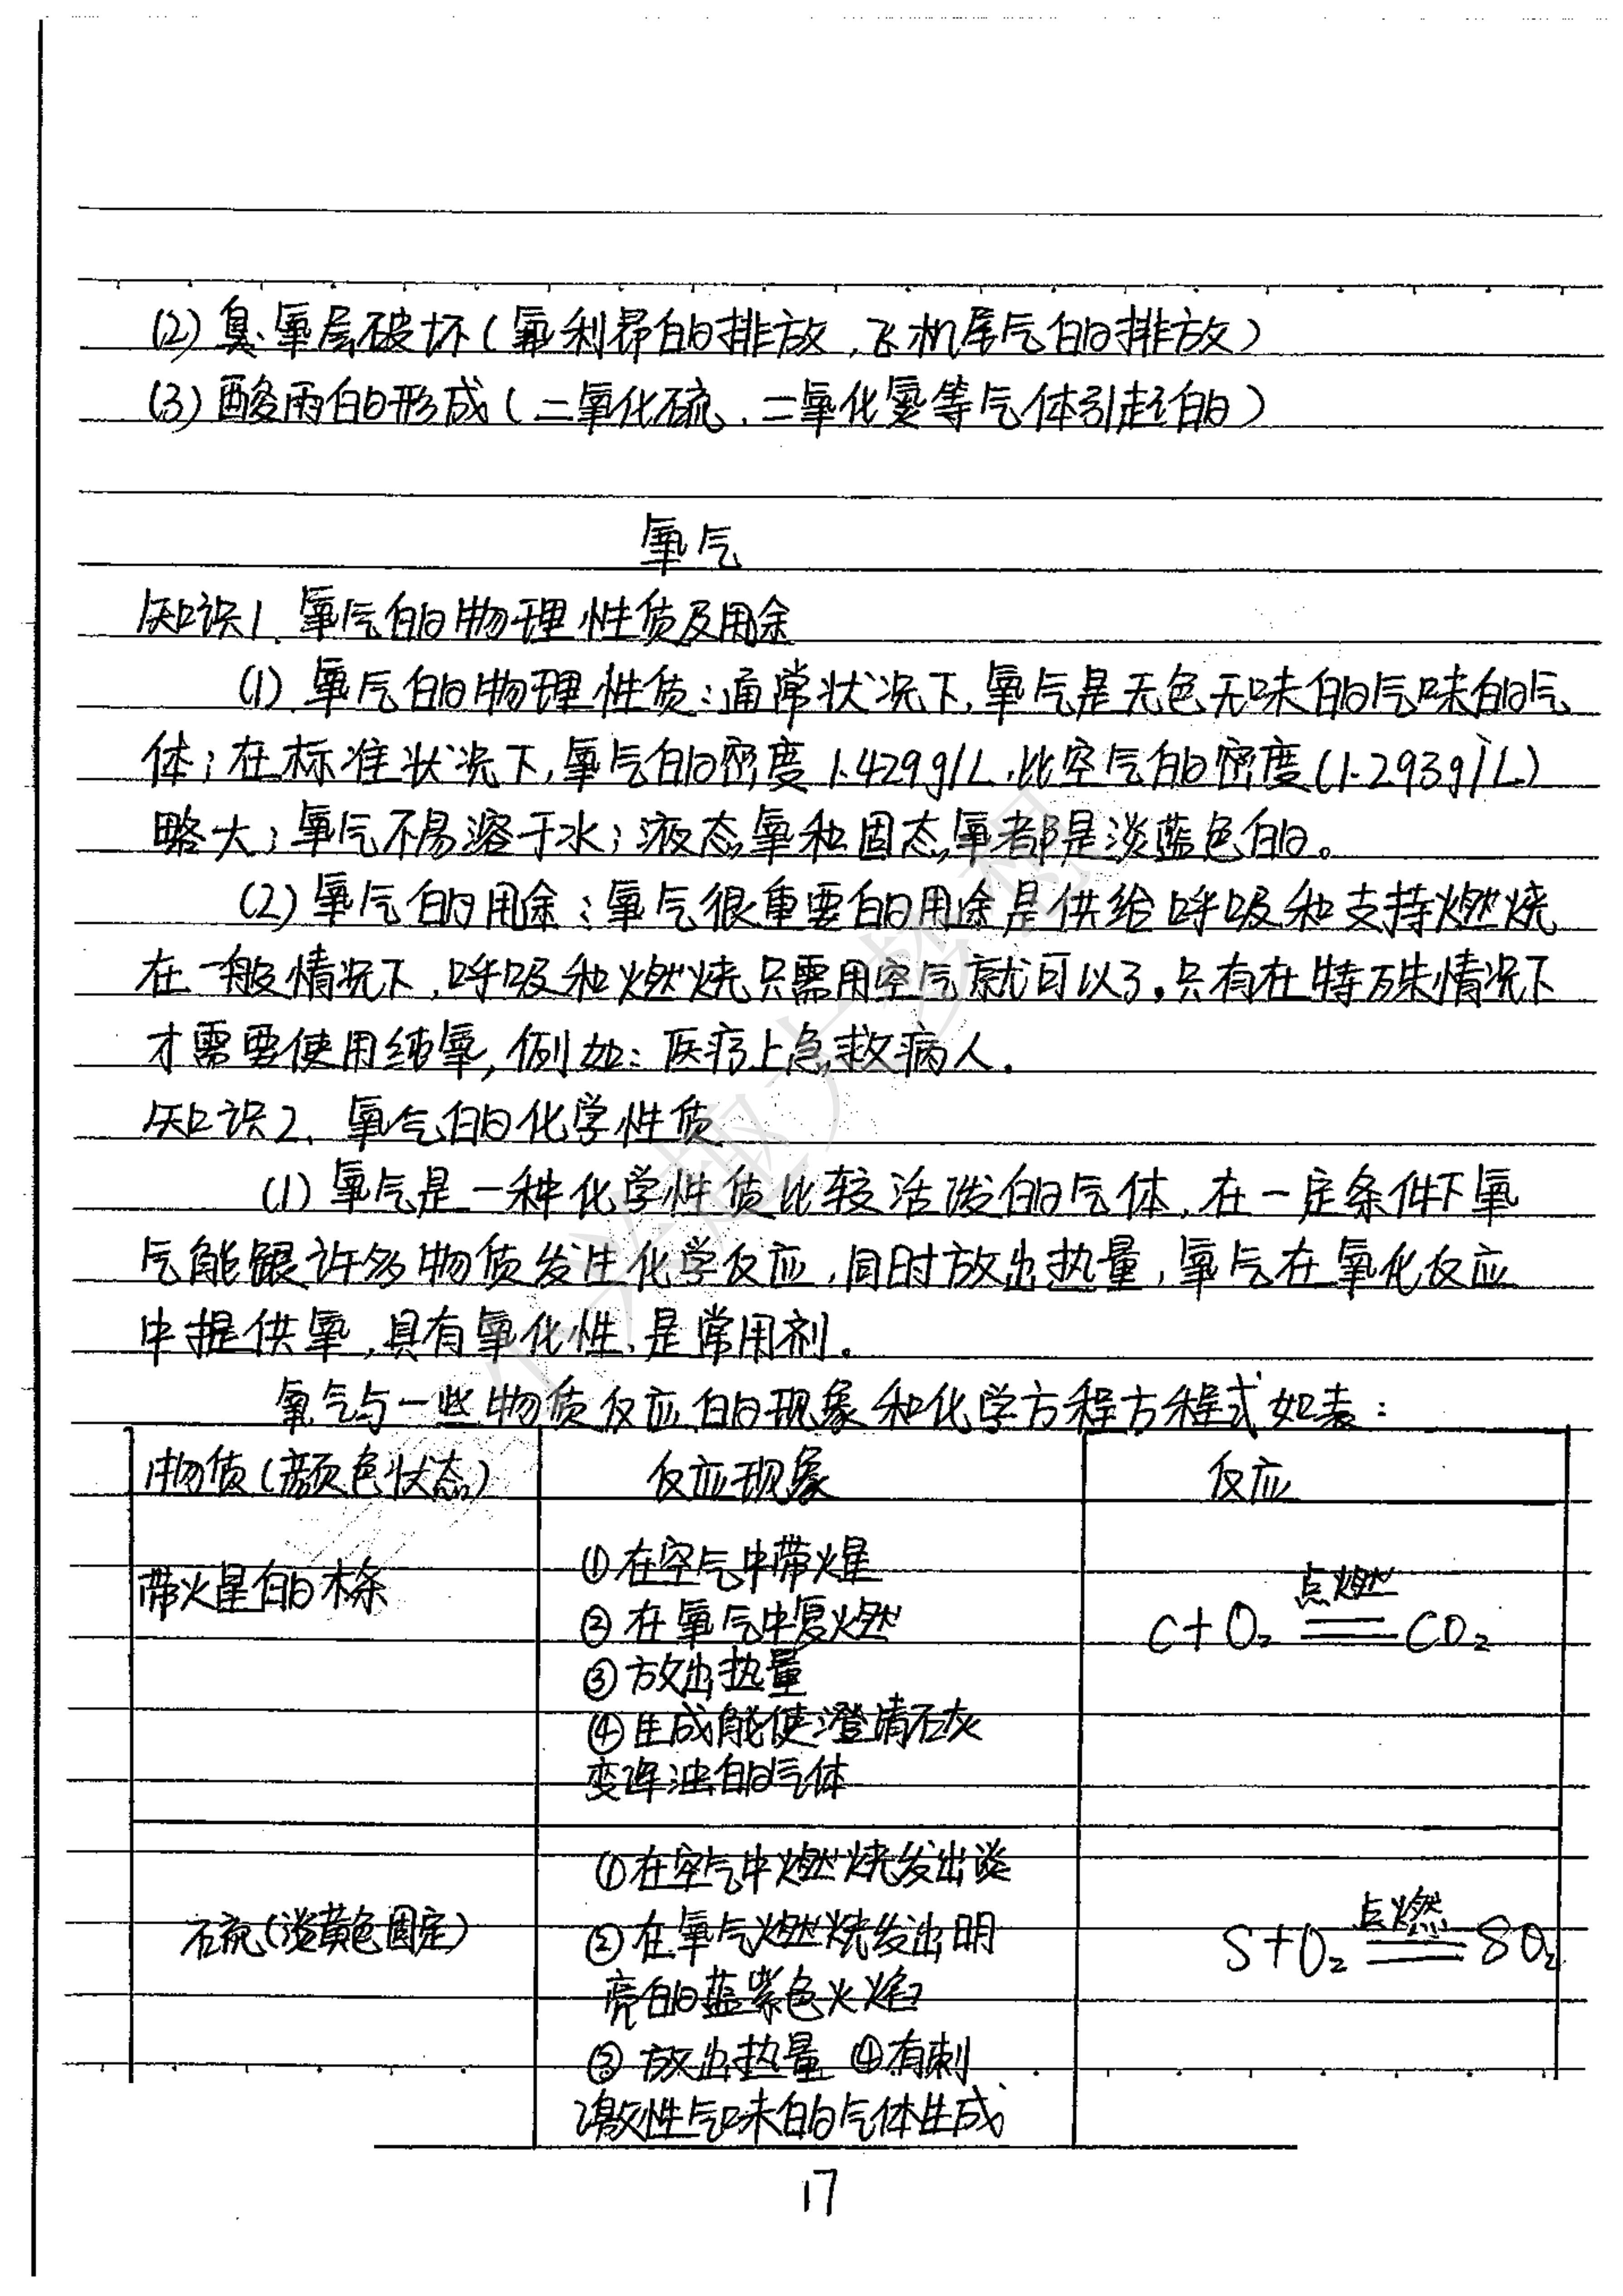 (2) 臭氧层破坏(氟利昂的排放,飞机尾气的排放)
(3) 酸雨的形成(二氧化硫、二氧化氮等气体引起的)
氧气
知识1、氧气的物理性质及用途
(1) 氧气的物理性质:通常状况下,氧气是无色无味的气味的气
体;在标准状况下,氧气的密度1.429g/L,比空气的密度(1.293g/L)
略大;氧气不易溶于水;液态氧和固态氧都是淡蓝色的。
(2) 氧气的用途:氧气很重要的用途是供给呼吸和支持燃烧
在一般情况下,呼吸和燃烧只需用空气就可以了。只有在特殊情况下
才需要使用纯氧,例如:医疗上急救病人。
知识2、氧气的化学性质
(1) 氧气是一种化学性质比较活泼的气体,在一定条件下氧
气能跟许多物质发生化学反应,同时放出热量,氧气在氧化反应
中提供氧,具有氧化性、是常用剂。
氧气与一些物质反应的现象和化学方程方程式如表:
物质(颜色状态) 反应现象 反应
带火星的木条
①在空气中带火星
②在氧气中复燃
③放出热量
④生成能使澄清石灰
变浑浊的气体
C+O₂ 点燃 == CO₂
硫(淡黄色固定)
①在空气中燃烧发出淡
②在氧气燃烧发出明
亮的蓝紫色火焰
③放出热量 ④有刺
激性气味的气体生成
S+O₂ 点燃 == SO₂
17